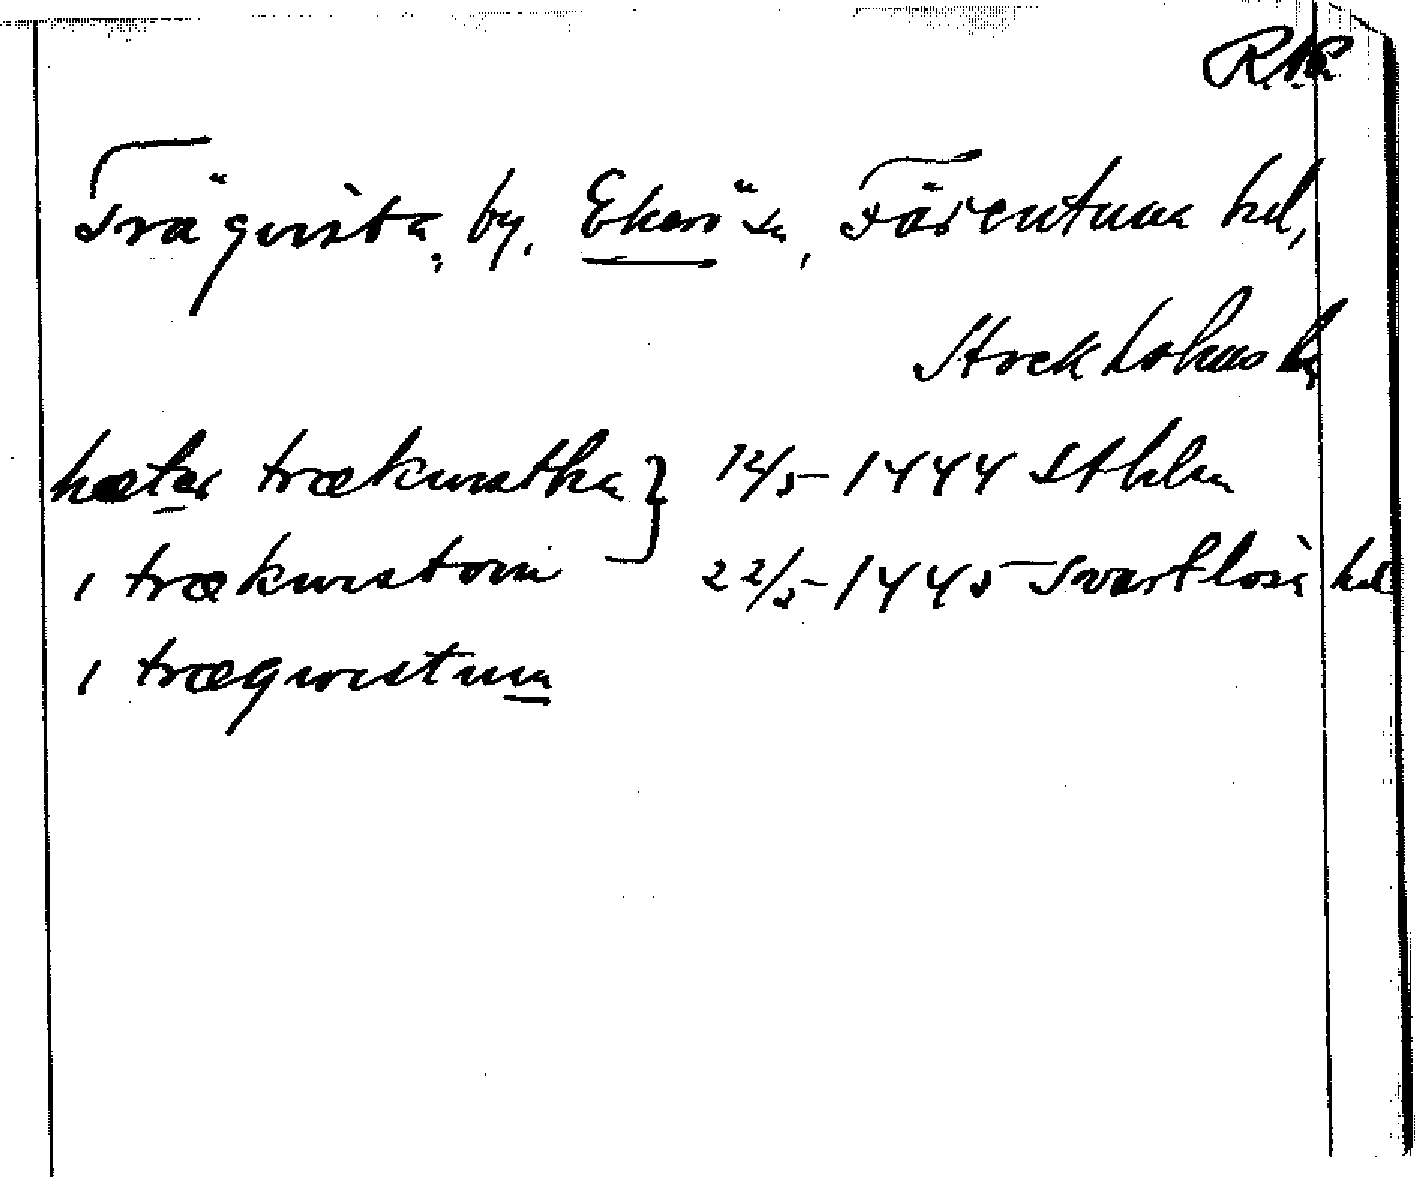 Träqvista, by, Ekerö sn, Färentuna hd,
Stockholms län
hæter trækwistha } 12/5 1444 Sthlm
i trækwistom 22/5 1445 Svartlösa hd
i trægwistum